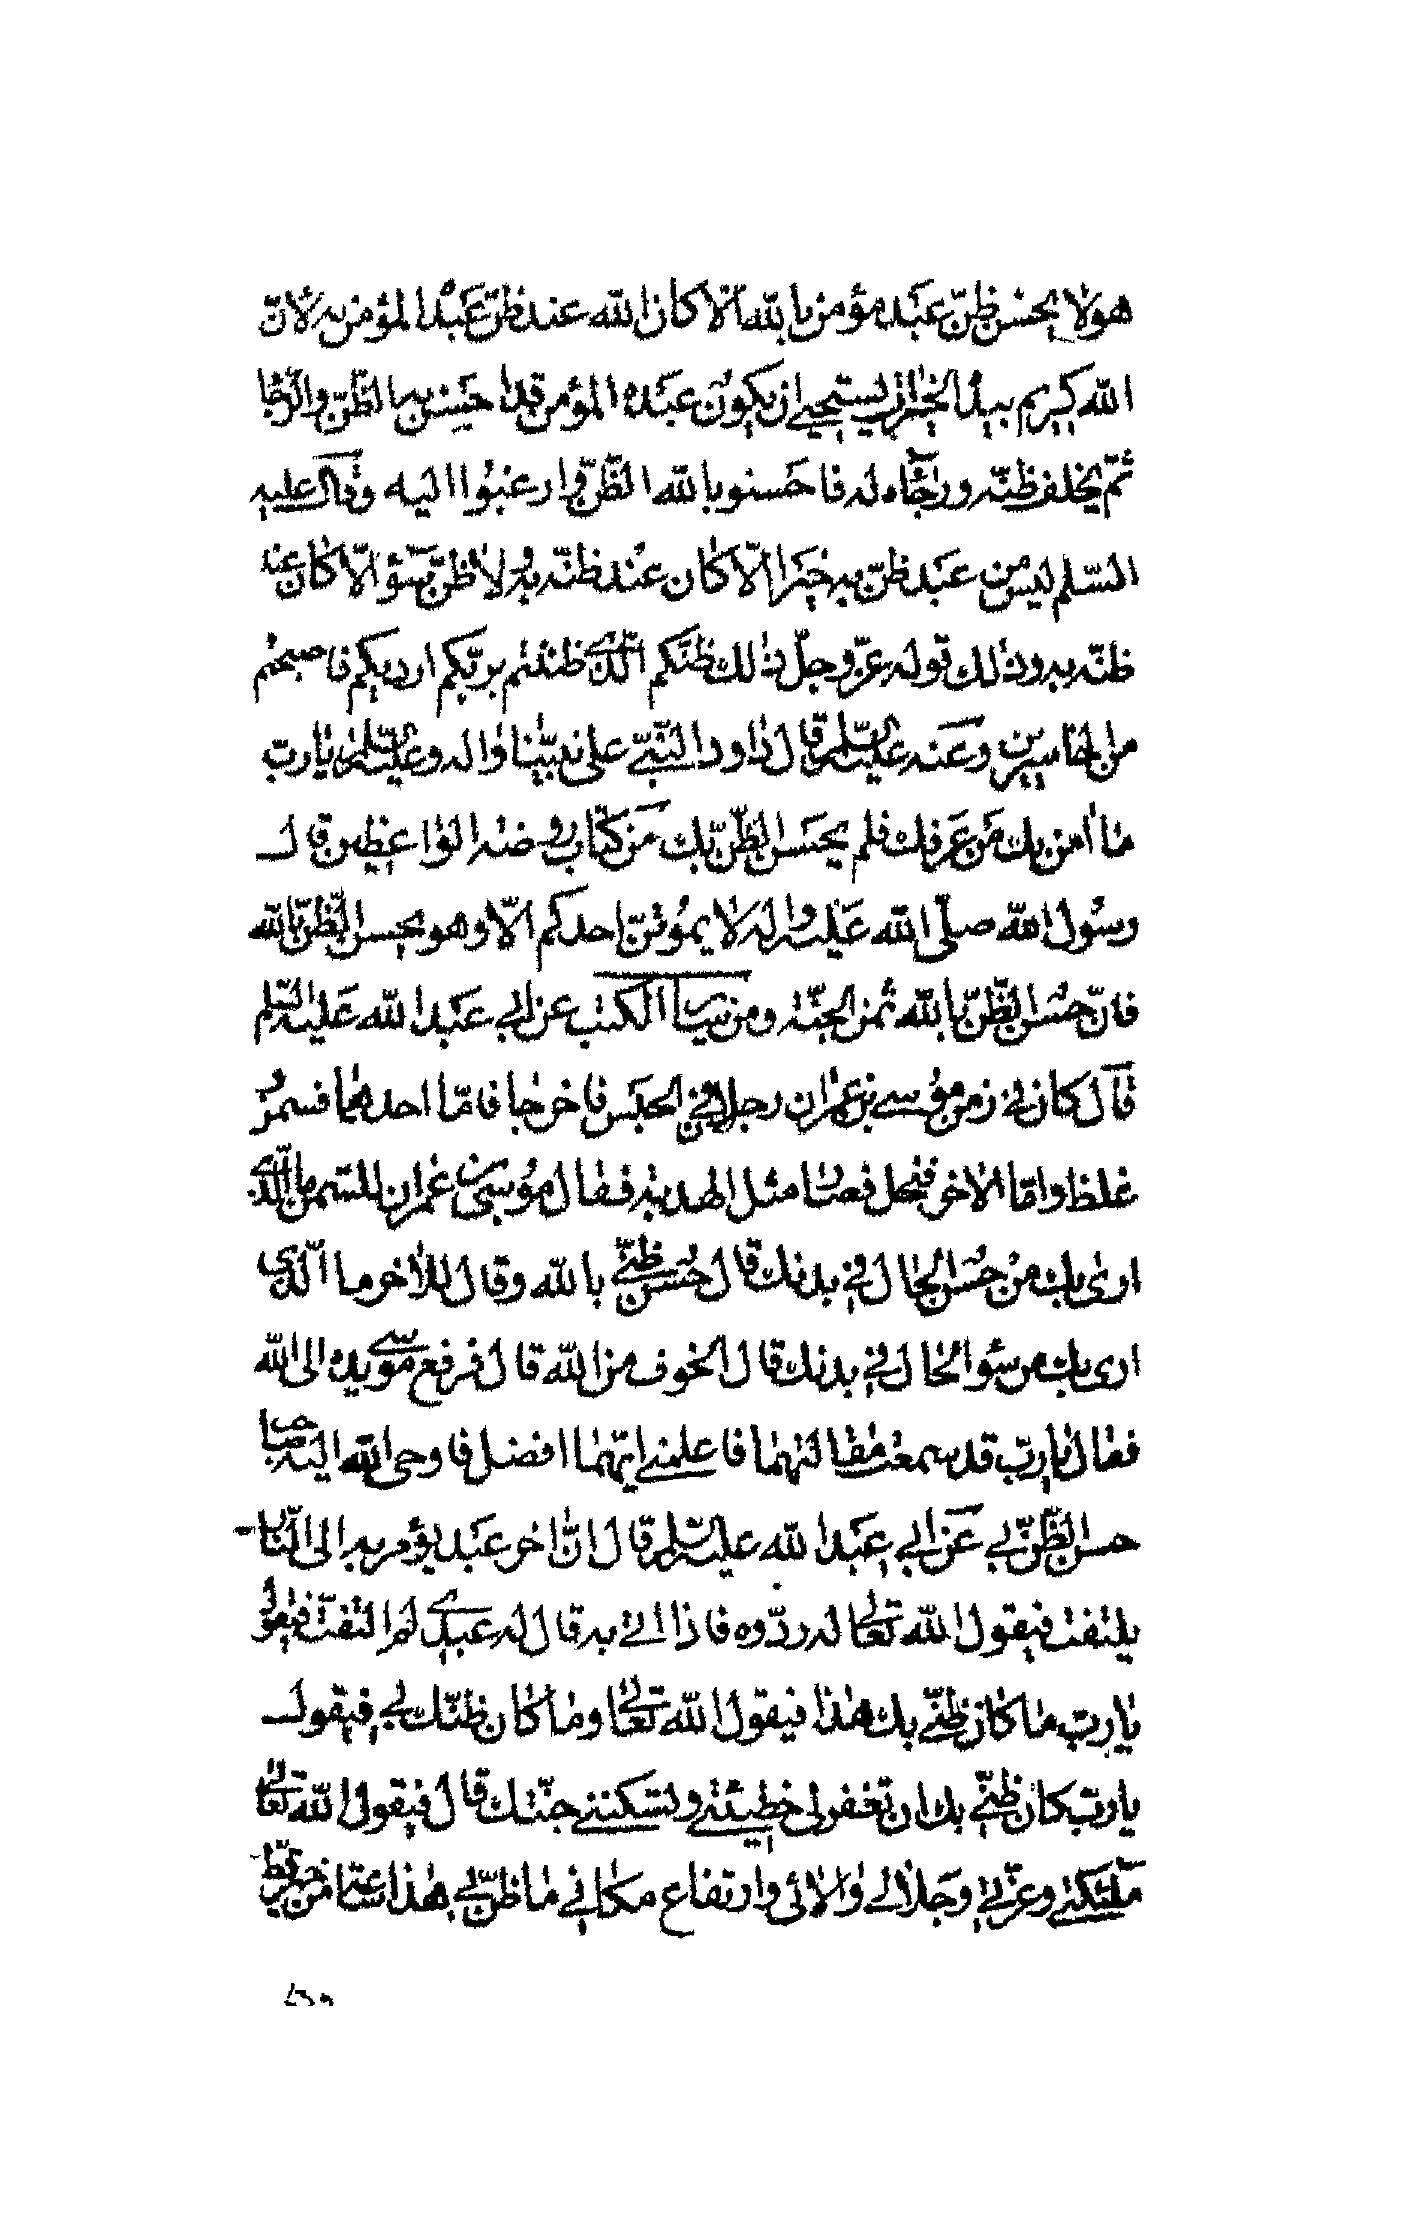 هو لا يحسن ظنّ عبد مؤمن بالله الّا كان الله عند ظنّ عبده المؤمن به لانّ
الله كريم بيده الخيرات يستحيي ان يكون عبده المؤمن قد احسن به الظّنّ والرّجا
ثمّ يخلف ظنّه ورجاه له فاحسنوا بالله الظّنّ وارغبوا اليه وقال عليه
السّلم ليس من عبد ظنّ به خيرا الّا كان عند ظنّه به ولا ظنّ به سوّ الّا كان عند
ظنّه به وذلك قوله عزّ وجلّ ذلك ظنّكم الّذى ظننتم بربّكم ارديكم فاصبحتم
من الخاسرين وعنه عليه السّلم قال داود النّبيّ على نبيّنا واله وعليه السّلم يا ربّ
ما امن بك من عرفك فلم يحسن الظّنّ بك من كتاب روضة الواعظين قال
رسول الله صلّى الله عليه واله لا يموتنّ احدكم الّا وهو يحسن الظّنّ بالله
فانّ حسن الظّنّ بالله ثمن الجنّة ومن سائر الكتب عن ابي عبد الله عليه السّلم
قال كان في زمن موسى بن عمران رجلان في الحبس فاخرجا فامّا احدهما فسمن
غلظ وامّا الاخر فنحل فصار مثل الهدبة فقال موسى بن عمران للسّمين ما الّذى
ارى بك من حسن الحال في بدنك قال حسن ظنّي بالله وقال للاخر ما الّذى
ارى بك من سؤ الحال في بدنك قال الخوف من الله قال فرفع موسى يده الى الله
فقال يا ربّ قد سمعت مقالتهما فاعلمني ايّهما افضل فاوحى الله اليه صاحب
حسن الظّنّ بي عن ابي عبد الله عليه السّلم قال انّ اخر عبد يؤمر به الى النّار
يلتفت فيقول الله تعالى له ردّوه فاذا اتي به قال له عبدي لم التفتّ فيقول
يا ربّ ما كان ظنّي بك هذا فيقول الله تعالى وما كان ظنّك بي فيقول
يا ربّ كان ظنّي بك ان تغفر لى خطيئتي وتسكنني جنّتك قال فيقول الله تعالى
ملئكتي وعزّتي وجلالي والائى وارتفاع مكاني ما ظنّ بي هذا ساعة من خير قط